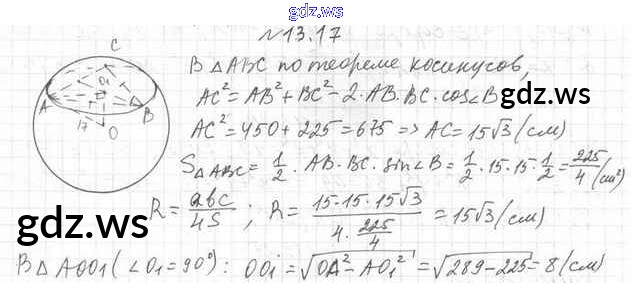 gdz.ws
№13.17
В △ABC по теореме косинусов,
AC² = AB² + BC² - 2·AB·BC·cos∠B
gdz.ws
AC² = 450 + 225 = 675 => AC = 15√3 (см)
S△ABC = 1/2 · AB · BC · sin∠B = 1/2 · 15 · 15 · 1/2 = 225/4 (см²)
R = abc/4S ; R = 15·15·15√3 / 4·225/4 = 15√3 (см)
gdz.ws
В △AOO1 (∠O1 = 90°) : OO1 = √OA² - AO1² = √289 - 225 = 8 (см)
gdz.ws
C
O1
A
B
17
O